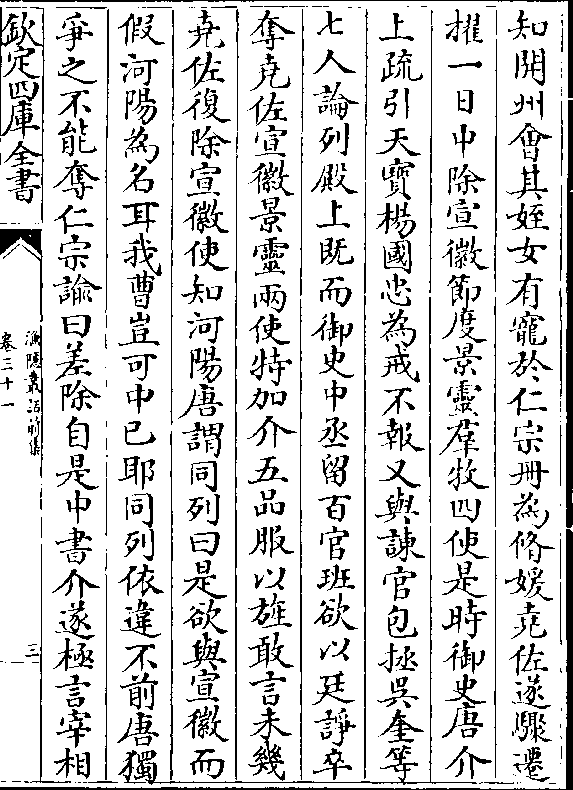 知開州會其姪女有寵於仁宗冊為脩媛堯佐遂驟遷
擢一日中除宣徽節度景靈羣牧四使是時御史唐介
上疏引天寶楊國忠為戒不報又與諫官包拯吳奎等
七人論列殿上既而御史中丞留百官班欲以廷諍卒
奪堯佐宣徽景靈兩使特加介五品服以旌敢言未幾
堯佐復除宣徽使知河陽唐謂同列曰是欲與宣徽而
假河陽為名耳我曹豈可中已耶同列依違不前唐獨
爭之不能奪仁宗諭曰差除自是中書介遂極言宰相
欽定四庫全書
漁隱叢話前集
卷三十一
三